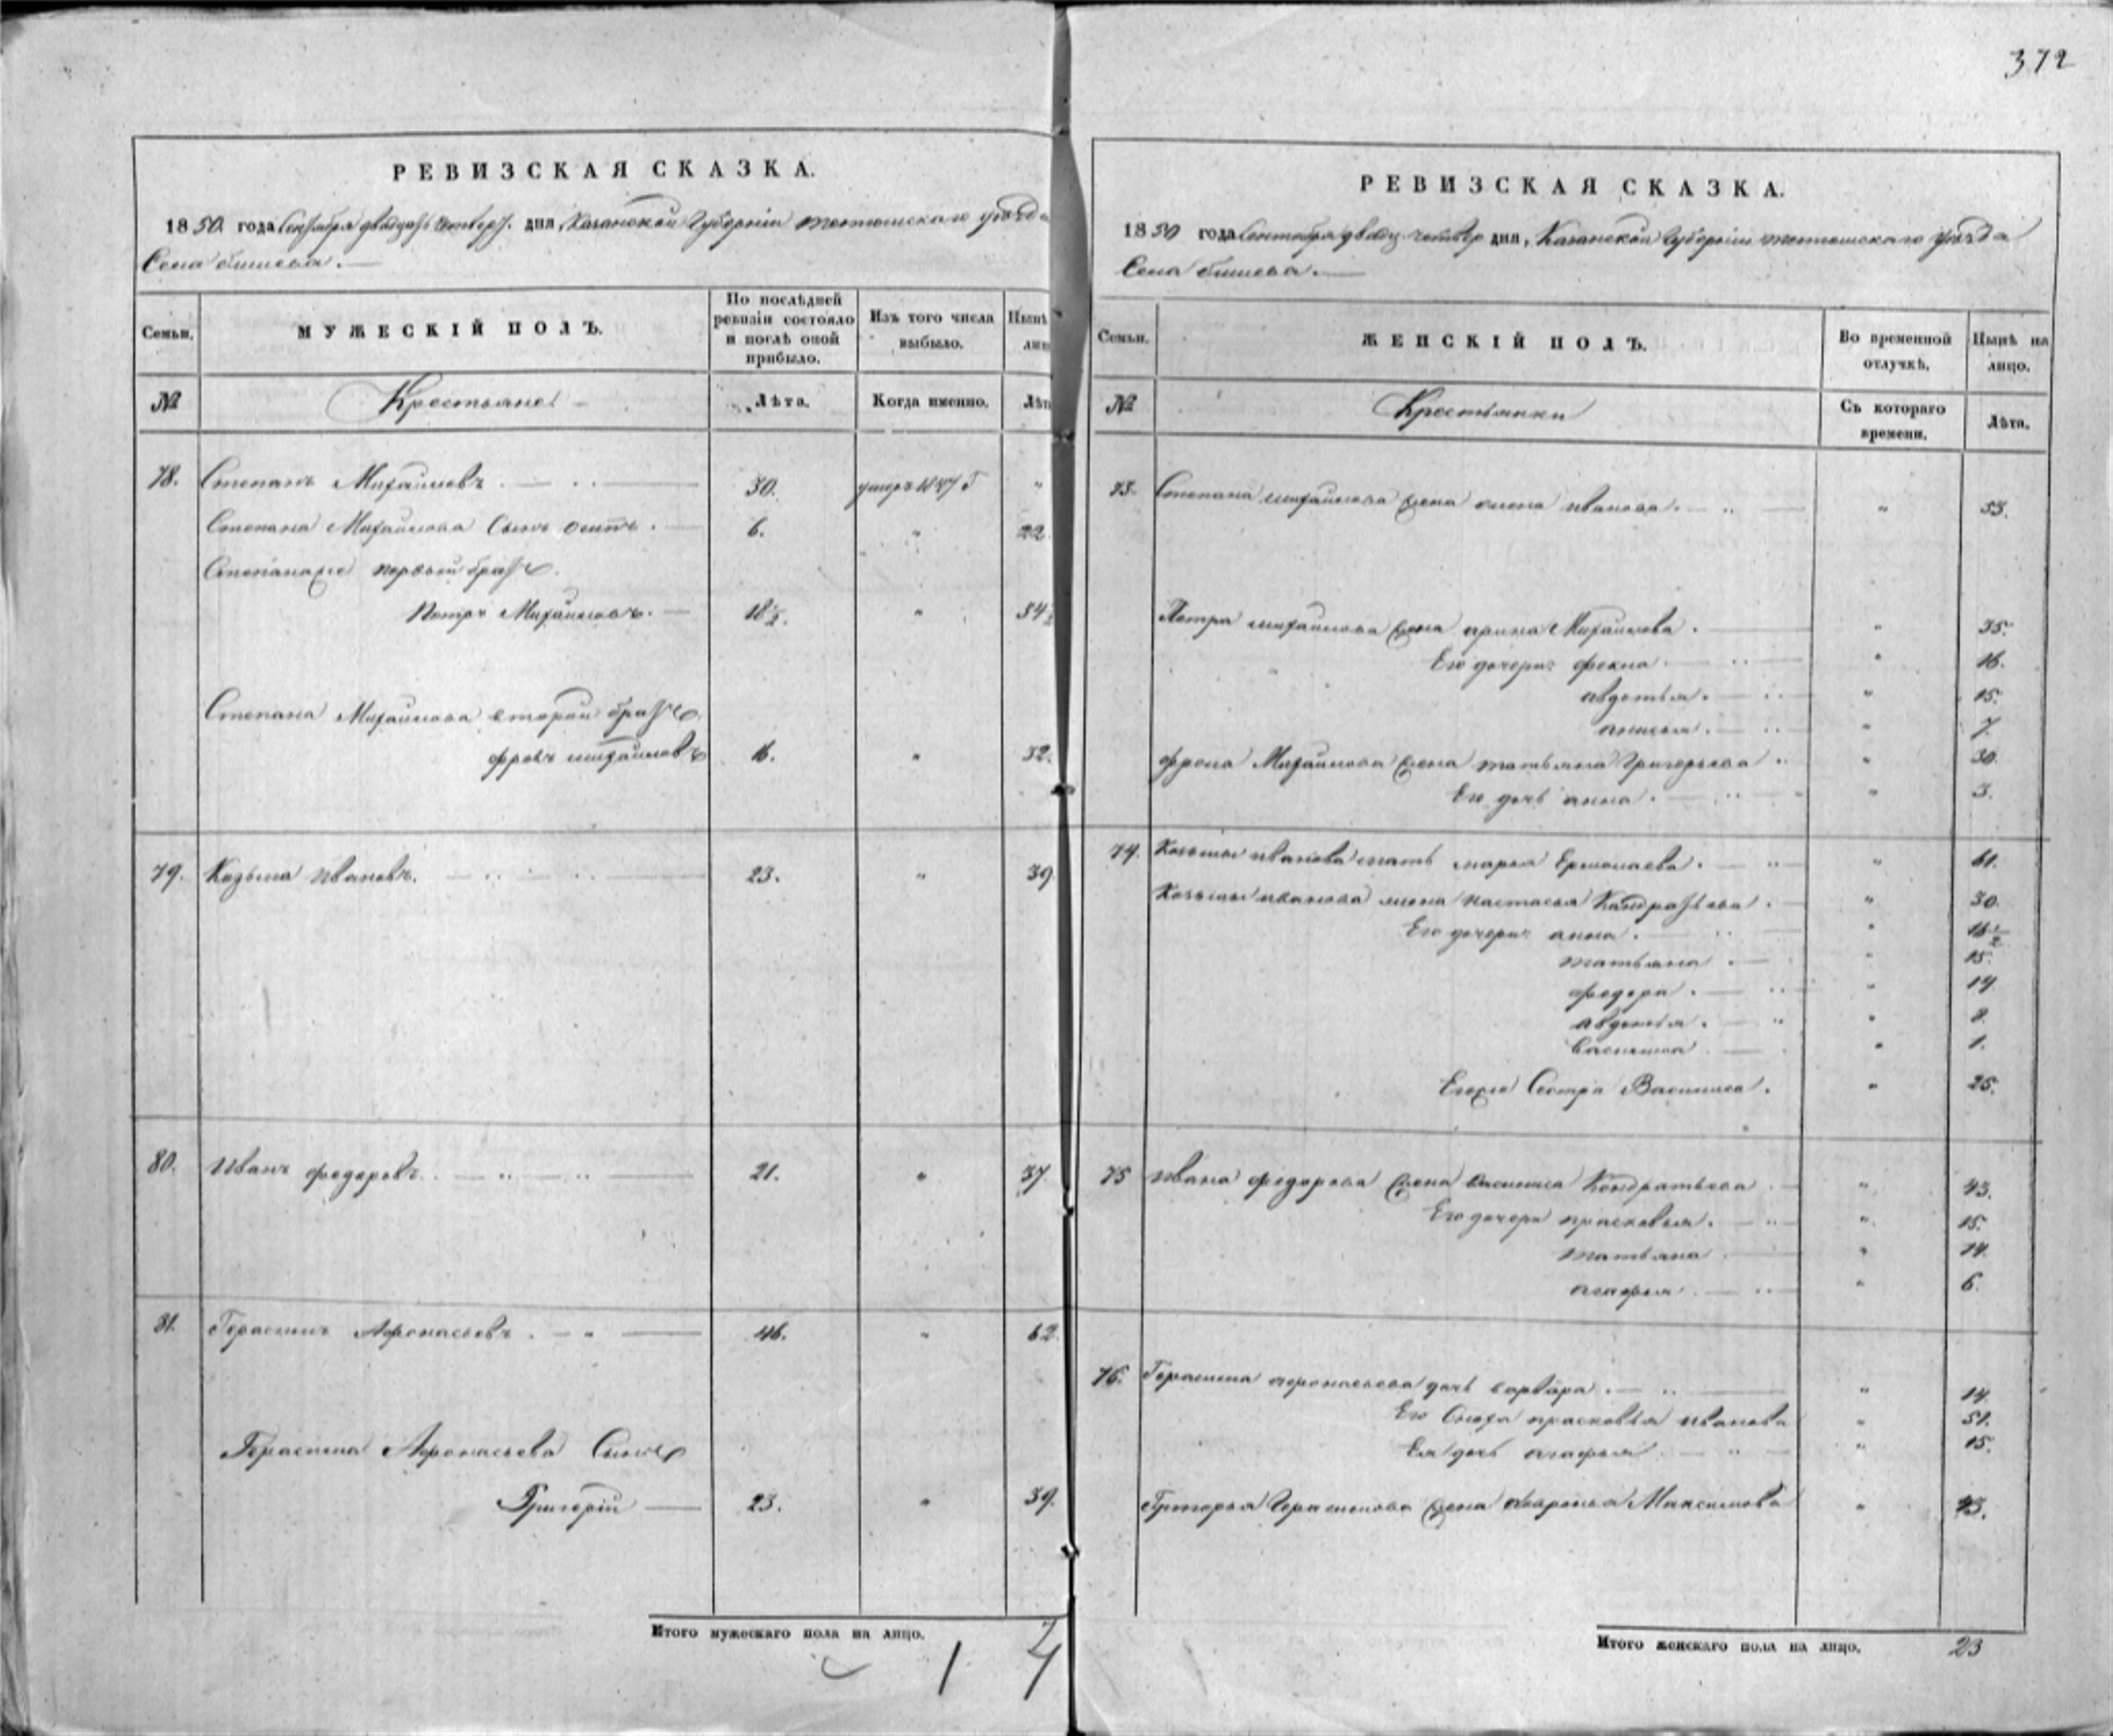 372
РЕВИЗСКАЯ СКАЗКА.
1850 года Сентября двадцать четверт. дня, Казанской Губернии тетюшскаго уезда
Села
Семьи.
МУЖЕСКІЙ ПОЛЪ.
По послѣдней ревизіи состояло и послѣ оной прибыло.
Изъ того числа выбыло.
Нынѣ
№
Крестьяне
Лѣта.
Когда именно.
Лѣта
78. Степанъ Михаиловъ 30. умеръ 1847 Г "
Степана Михаилова Сынъ осипъ. 6. " 22
Степана первый братъ
Петръ Михаиловъ. 18½. " 34½
Степана Михаилова второй братъ
фролъ михаиловъ 16. " 32.
79. Козьма ивановъ. 23. " 39
80. Иванъ федоровъ 21. " 37
81. Герасимъ Афонасьевъ. 46. " 62
Герасима Афонасьева Сынъ
Григорій 23. " 39
Итого мужескаго пола на лицо.
7
РЕВИЗСКАЯ СКАЗКА.
1850 года Сентября двадц. четвер дня, Казанской Губернии тетюшскаго уезда
Села
Семьи.
ЖЕНСКІЙ ПОЛЪ.
Во временной отлучкѣ.
Нынѣ на лицо.
№
Крестьянки
Съ котораго времени.
Лѣта.
73. Степана михаилова жена елена иванова. " 53.
Петра михаилова жена арина Михаилова. " 35.
Его дочери: фекла. " 16.
авдотья. " 15.
анисья. " 7.
фрола Михаилова жена татьяна Григорьева. " 30.
Его дочь анна. " 3.
74. Козьмы иванова мать марья Ермолаева. " 61.
Козьмы иванова жена настасья Кондратьева. " 30.
Его дочери: анна. " 16½
татьяна. " 15.
федора. " 14
авдотья. " 8.
василиса " 1.
Егоже Сестра Василиса. " 25.
75 ивана федорова жена василиса Кондратьева " 43.
Его дочери прасковья. " 15.
татьяна " 14.
агафья " 6.
76. Герасима афонасьева дочь варвара. " 14.
Его Сноха прасковья иванова " 51.
Ея дочь агафья " 15.
Григорья Герасимова жена Максимова " 43.
Итого женскаго пола на лицо. 23